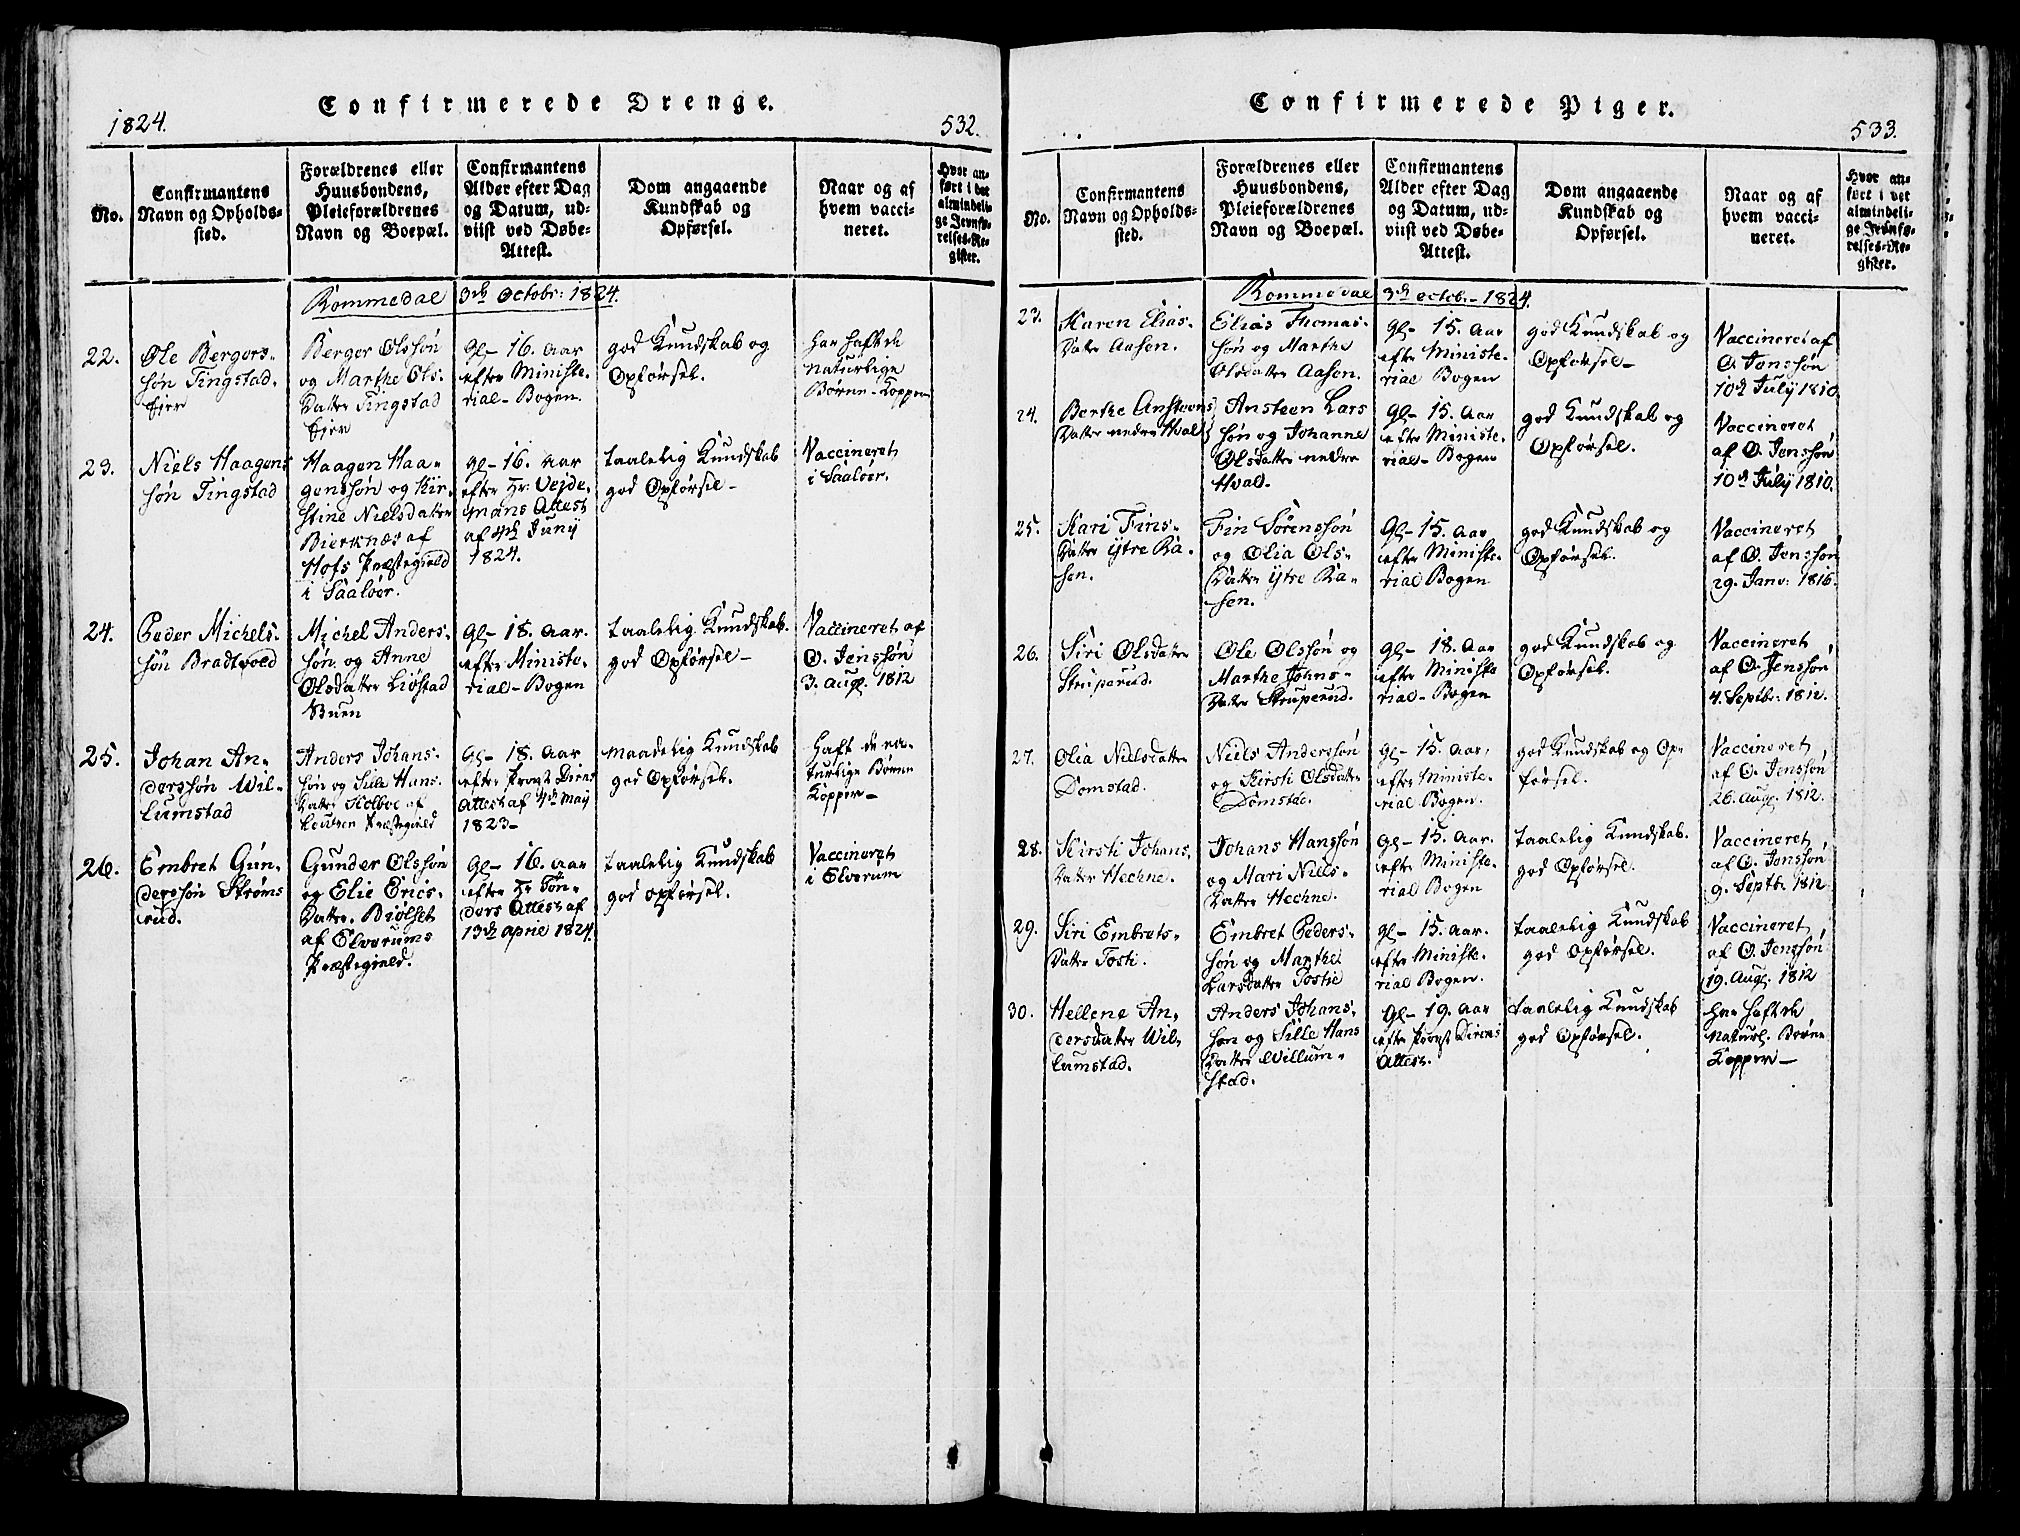 Confirmerede Drenge.
1824.
532.
No.
Confirmantens
Navn og Opholds-
sted.
Forældrenes eller
Huusbondens,
Pleieforældrenes
Navn og Boepæl.
Confirmantens
Alder efter Dag
og Datum, ud-
viist ved Døbe-
Attest.
Dom angaaende
Kundskab og
Opførsel.
Naar og af
hvem vacci-
neret.
Hvor an-
ført i det
almindeli-
ge Jevnfø-
relses-Re-
gister.
Rommedal 3de Octobr: 1824.
22.
Ole Bergers-
søn Tingstad.
Ejer
Berger Olssøn
og Marthe Ols-
Datter Tingstad
Ejer
Gl- 16. Aar
efter Ministe-
rial- Bogen.
god Kundskab og
Opførsel.
har hafte de
naturlige
Børne-Kopper
23.
Niels Haagens
søn Tingstad
Haagen Haa-
genssøn og Kir-
stine Nielsdatter
Bierknæs af
Hofs Præstegield
i Saaløer.
Gl- 16. Aar
efter Hr: Vejde-
mans Attest
af 4de Junij
1824.
taalelig Kundskab
god Opførsel-
Vaccineret
i Saaløer.
24.
Peder Michels-
søn Bradtvold
Michel Anders-
søn og Anne
Olsdatter Liøstad
Buen
Gl- 18. Aar.
efter Ministe-
rial- Bogen
taalelig Kundskab.
god Opførsel-
Vaccineret af
O. Jenssøn
3. Aug. 1812
25.
Johan An-
derssøn Wil-
lumstad
Anders Johans-
søn og Sille Hans
Datter Kolboe af
Leutren Præstegield
Gl- 18. Aar
efter Provst Dirns
Attest af 4de May
1823-
maadelig Kundskab
god Opførsel.
haft de na-
turlige Børne
Kopper-
26.
Embret Gun-
derssøn Strøms
rud.
Gunder Olssøn
og Elie Erics-
Datter. Biølset
af Elverums
Præstegield.
Gl- 16. Aar
efter Hr Tøn-
ders Attest af
13de April 1824.
taalelig Kundskab
god opførsel.
Vaccineret
i Elverum
Confirmerede Piger.
533.
No.
Confirmantens
Navn og Opholds-
sted.
Forældrenes eller
Huusbondens,
Pleieforældrenes
Navn og Boepæl.
Confirmantens
Alder efter Dag
og Datum, ud-
viist ved Døbe-
Attest.
Dom angaaende
Kundskab og
Opførsel.
Naar og af
hvem vacci-
neret.
Hvor an-
ført i det
almindeli-
ge Jevnfø-
relses-Re-
gister.
Rommedal 3de octob.- 1824.
23.
Karen Elias-
Datter Aasen.
Elias Thomas-
søn og Marthe
Olsdatter Aasen.
Gl- 15. Aar
efter Ministe-
rial Bogen
god Kundskab og
Opførsel-
Vaccineret af
O. Jenssøn
10de July 1810.
24.
Berthe Ansteens
Datter nedre Hval
Ansteen Lars
søn og Johanne
Olsdatter nedre
Hval.
Gl- 15. Aar
efter Ministe-
rial- Bogen
god Kundskab og
Opførsel.
Vaccineret
af O. Jenssøn
10de July 1810.
25.
Kari Fins-
Datter ytre Ra-
sen.
Fin Sørenssøn
og Olia Ols-
Datter ytre Ra-
sen.
Gl- 15. Aar
efter Ministe-
rial Bogen
god Kundskab og
Opførsel.
Vaccineret
af O. Jenssøn
29. Janv: 1816.
26.
Siri Olsdatter
Struperud.
Ole Olssøn og
Marthe Johns-
Datter Struperud.
Gl- 18. Aar
efter Ministe
rial- Bogen
god Kundskab og
Opførsel.
Vaccineret
af O. Jenssøn
4. Septbr: 1812.
27.
Olia Nielsdatter
Domstad.
Niels Anderssøn
og Kirsti Olsdatter
Domstad.
Gl- 15. Aar,
efter Ministe-
rial Bogen.
god Kundskab og Op-
førsel.
Vaccineret
af O. Jenssøn
26. Aug. 1812.
28.
Kirsti Johans-
Datter Hechne.
Johans Hanssøn
og Mari Niels-
Datter Hechne.
Gl- 15. Aar.
efter Ministe-
rial Bogen
taalelig Kundskab.
god Opførsel.
Vaccineret
af O. Jenssøn
9. Septb. 1812
29.
Siri Embrets-
Datter Tosti.
Embret Peders-
søn og Marthe
Larsdatter Tostie
Gl- 15. Aar.
efter Ministe-
rial Bogen.
taalelig Kundskab
god Opførsel.
Vaccineret
af O. Jenssøn
19. Aug. 1812
30.
Hellene An-
dersdatter Wil-
lumstad.
Anders Johans-
søn og Sille Hans
Datter Willum-
stad.
Gl- 19. Aar
efter Provst Direns
Attest.
taalelig Kundskab
god Opførsel.
har haft de
naturl. Børne
Kopper-